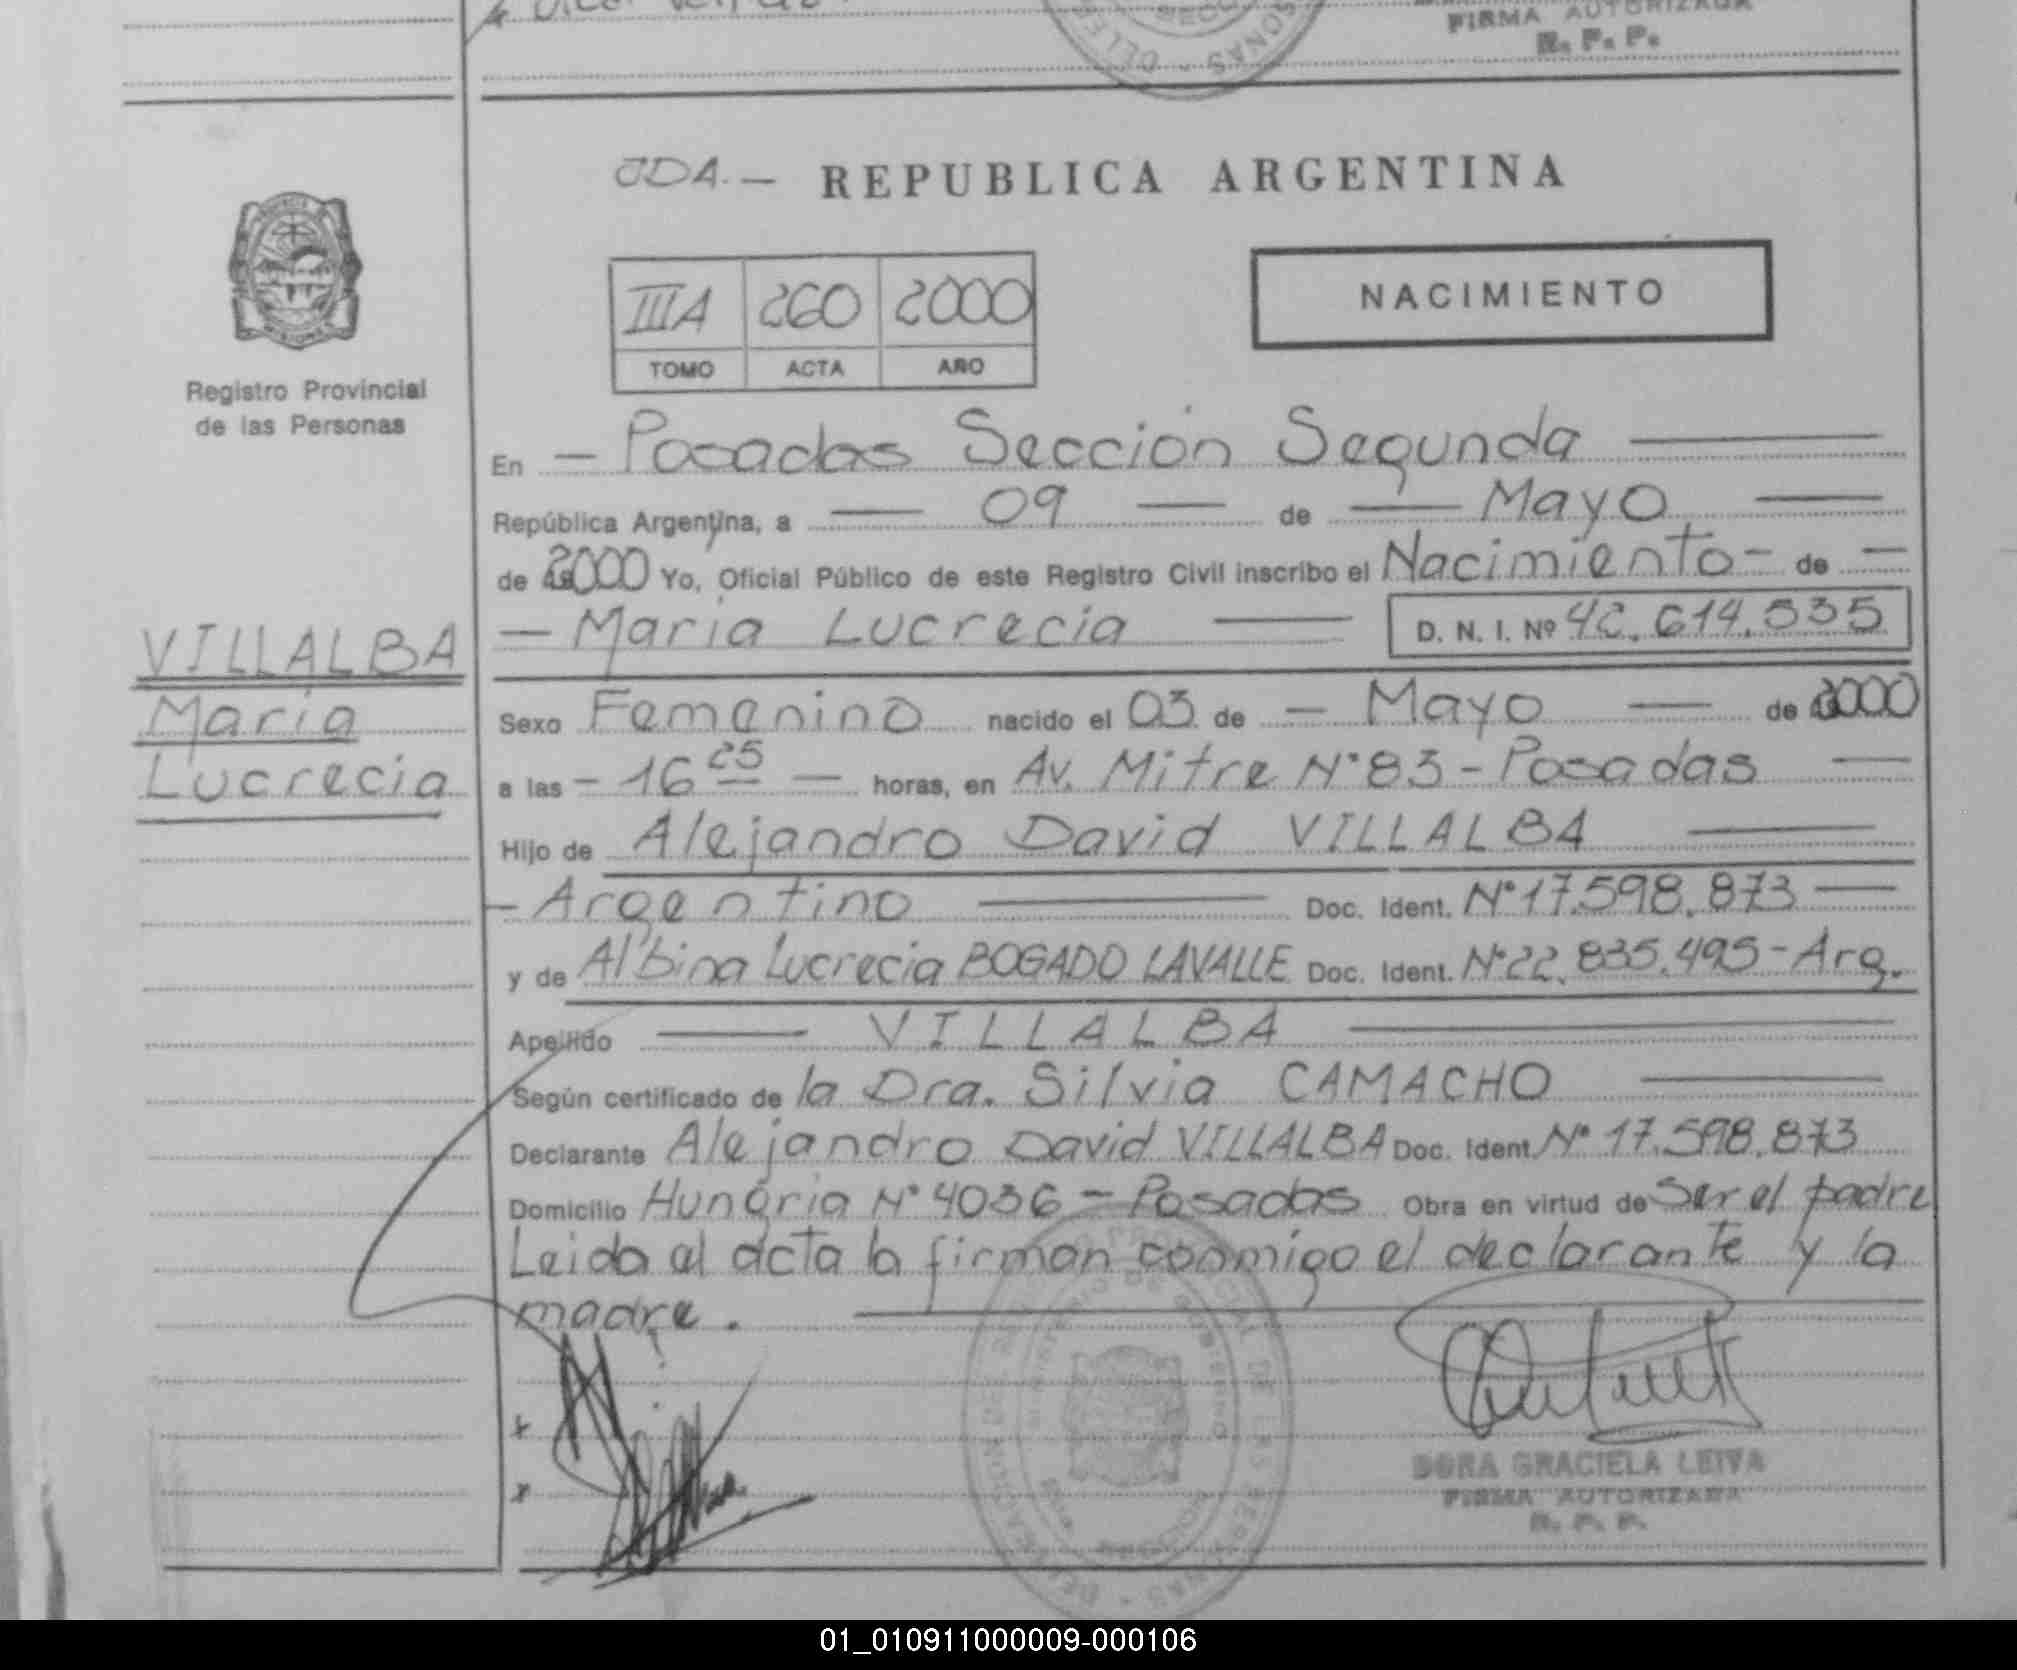 FIRMA AUTORIZADA
R. P. P.
JDA. — REPUBLICA ARGENTINA
IIIA 260 2000
TOMO ACTA AÑO
NACIMIENTO
Registro Provincial
de las Personas
VILLALBA
María
Lucrecia
En — Posadas Sección Segunda —
República Argentina, a — 09 — de — Mayo —
de 2000 Yo, Oficial Público de este Registro Civil inscribo el Nacimiento - de —
— María Lucrecia — D. N. I. Nº 42.614.535
Sexo Femenino nacido el 03 de — Mayo — de 2000
a las - 16 25 — horas, en Av. Mitre N° 83 - Posadas —
Hijo de Alejandro David VILLALBA —
- Argentino — Doc. Ident. N° 17.598.873 —
y de Albina Lucrecia BOGADO LAVALLE Doc. Ident. N° 22.835.495 - Arg.
Apellido — VILLALBA —
Según certificado de la Dra. Silvia CAMACHO —
Declarante Alejandro David VILLALBA Doc. Ident N° 17.598.873
Domicilio Hungría N° 4036 - Posadas Obra en virtud de Ser el padre
Leida el acta la firman conmigo el declarante y la
madre. —
x
x
DORA GRACIELA LEIVA
FIRMA AUTORIZADA
R. P. P.
01_010911000009-000106